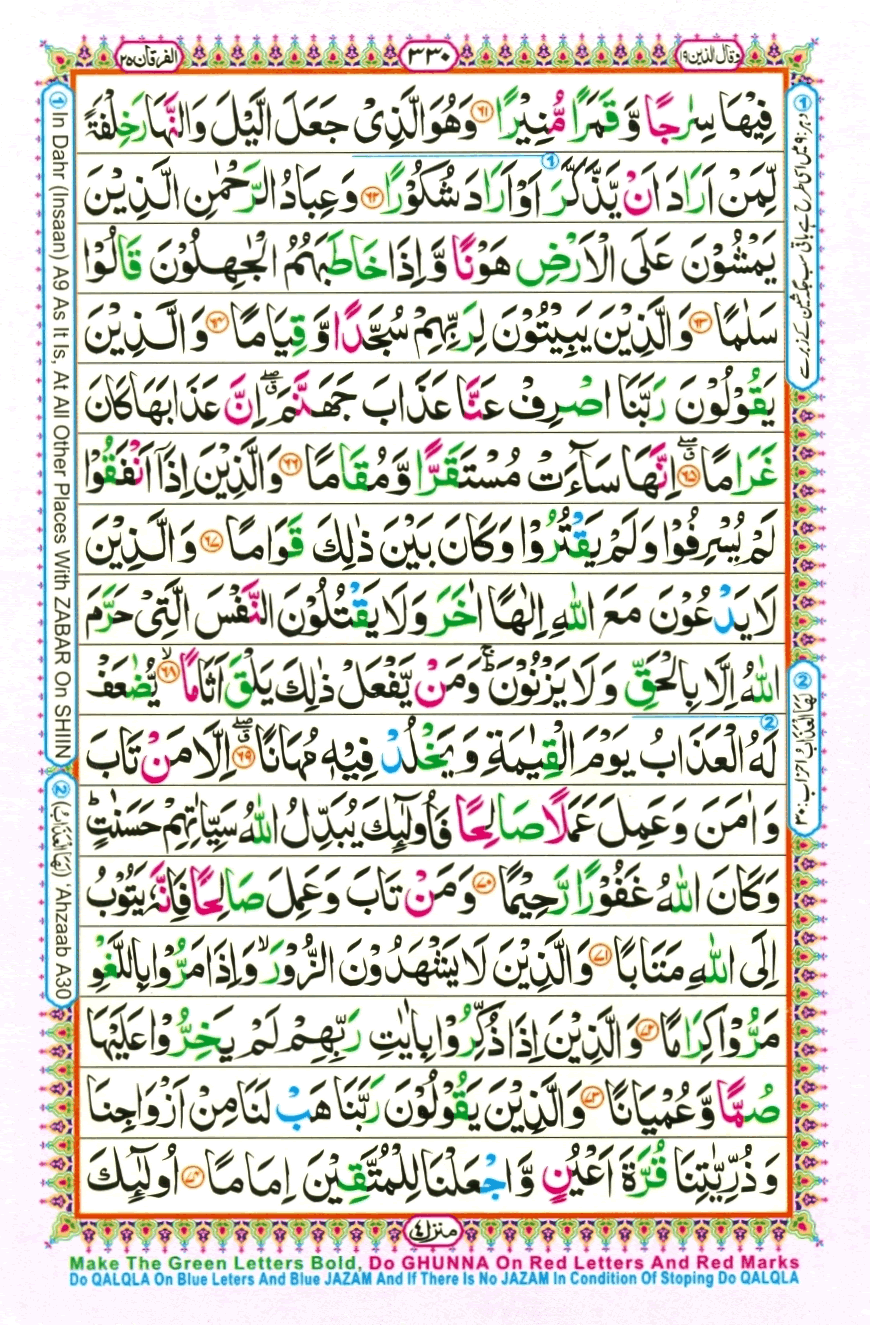 وقال الذین ۱۹
۳۳۰
الفرقان ۲۵
فِیْهَا سِرٰجًا وَّ قَمَرًا مُّنِیْرًا ﴿۶۱﴾ وَهُوَ الَّذِیْ جَعَلَ الَّیْلَ وَالنَّهَارَ خِلْفَةً
لِّمَنْ اَرَادَ اَنْ یَّذَّكَّرَ اَوْ اَرَادَ شُكُوْرًا ﴿۶۲﴾ وَعِبَادُ الرَّحْمٰنِ الَّذِیْنَ
یَمْشُوْنَ عَلَی الْاَرْضِ هَوْنًا وَّ اِذَا خَاطَبَهُمُ الْجٰهِلُوْنَ قَالُوْا
سَلٰمًا ﴿۶۳﴾ وَالَّذِیْنَ یَبِیْتُوْنَ لِرَبِّهِمْ سُجَّدًا وَّ قِیَامًا ﴿۶۴﴾ وَالَّذِیْنَ
یَقُوْلُوْنَ رَبَّنَا اصْرِفْ عَنَّا عَذَابَ جَهَنَّمَ ۖۗ اِنَّ عَذَابَهَا كَانَ
غَرَامًا ﴿۶۵﴾ ۖۗ اِنَّهَا سَآءَتْ مُسْتَقَرًّا وَّمُقَامًا ﴿۶۶﴾ وَالَّذِیْنَ اِذَاۤ اَنْفَقُوْا
لَمْ یُسْرِفُوْا وَلَمْ یَقْتُرُوْا وَكَانَ بَیْنَ ذٰلِكَ قَوَامًا ﴿۶۷﴾ وَالَّذِیْنَ
لَا یَدْعُوْنَ مَعَ اللّٰهِ اِلٰهًا اٰخَرَ وَلَا یَقْتُلُوْنَ النَّفْسَ الَّتِیْ حَرَّمَ
اللّٰهُ اِلَّا بِالْحَقِّ وَلَا یَزْنُوْنَ ۚ وَمَنْ یَّفْعَلْ ذٰلِكَ یَلْقَ اَثَامًا ﴿۶۸﴾ ۙ یُّضٰعَفْ
لَهُ الْعَذَابُ یَوْمَ الْقِیٰمَةِ وَیَخْلُدْ فِیْهٖ مُهَانًا ﴿۶۹﴾ ۖۗ اِلَّا مَنْ تَابَ
وَاٰمَنَ وَعَمِلَ عَمَلًا صَالِحًا فَاُولٰٓئِكَ یُبَدِّلُ اللّٰهُ سَیِّاٰتِهِمْ حَسَنٰتٍ ؕ
وَكَانَ اللّٰهُ غَفُوْرًا رَّحِیْمًا ﴿۷۰﴾ وَمَنْ تَابَ وَعَمِلَ صَالِحًا فَاِنَّهٗ یَتُوْبُ
اِلَی اللّٰهِ مَتَابًا ﴿۷۱﴾ وَالَّذِیْنَ لَا یَشْهَدُوْنَ الزُّوْرَ ۙ وَاِذَا مَرُّوْا بِاللَّغْوِ
مَرُّوْا كِرَامًا ﴿۷۲﴾ وَالَّذِیْنَ اِذَا ذُكِّرُوْا بِاٰیٰتِ رَبِّهِمْ لَمْ یَخِرُّوْا عَلَیْهَا
صُمًّا وَّعُمْیَانًا ﴿۷۳﴾ وَالَّذِیْنَ یَقُوْلُوْنَ رَبَّنَا هَبْ لَنَا مِنْ اَزْوَاجِنَا
وَذُرِّیّٰتِنَا قُرَّةَ اَعْیُنٍ وَّاجْعَلْنَا لِلْمُتَّقِیْنَ اِمَامًا ﴿۷۴﴾ اُولٰٓئِكَ
منزل ۴
① دہر:۹ میں اسی طرح ہے باقی سب جگہ شین کے زبر سے
② لَهَا الْعَذَابُ احزاب:۳۰
① In Dahr (Insaan) A9 As It Is, At All Other Places With ZABAR On SHIN
② (لَهَا الْعَذَابُ) 'Ahzaab A30
Make The Green Letters Bold, Do GHUNNA On Red Letters And Red Marks
Do QALQLA On Blue Leters And Blue JAZAM And If There Is No JAZAM In Condition Of Stoping Do QALQLA